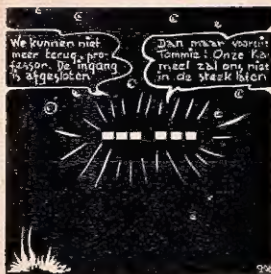 We kunnen niet
meer terug, pro-
fessor. De ingang
is afgesloten
Dan maar voortuit
Tommie! Onze Ka
meel zal ons niet
in de steek laten